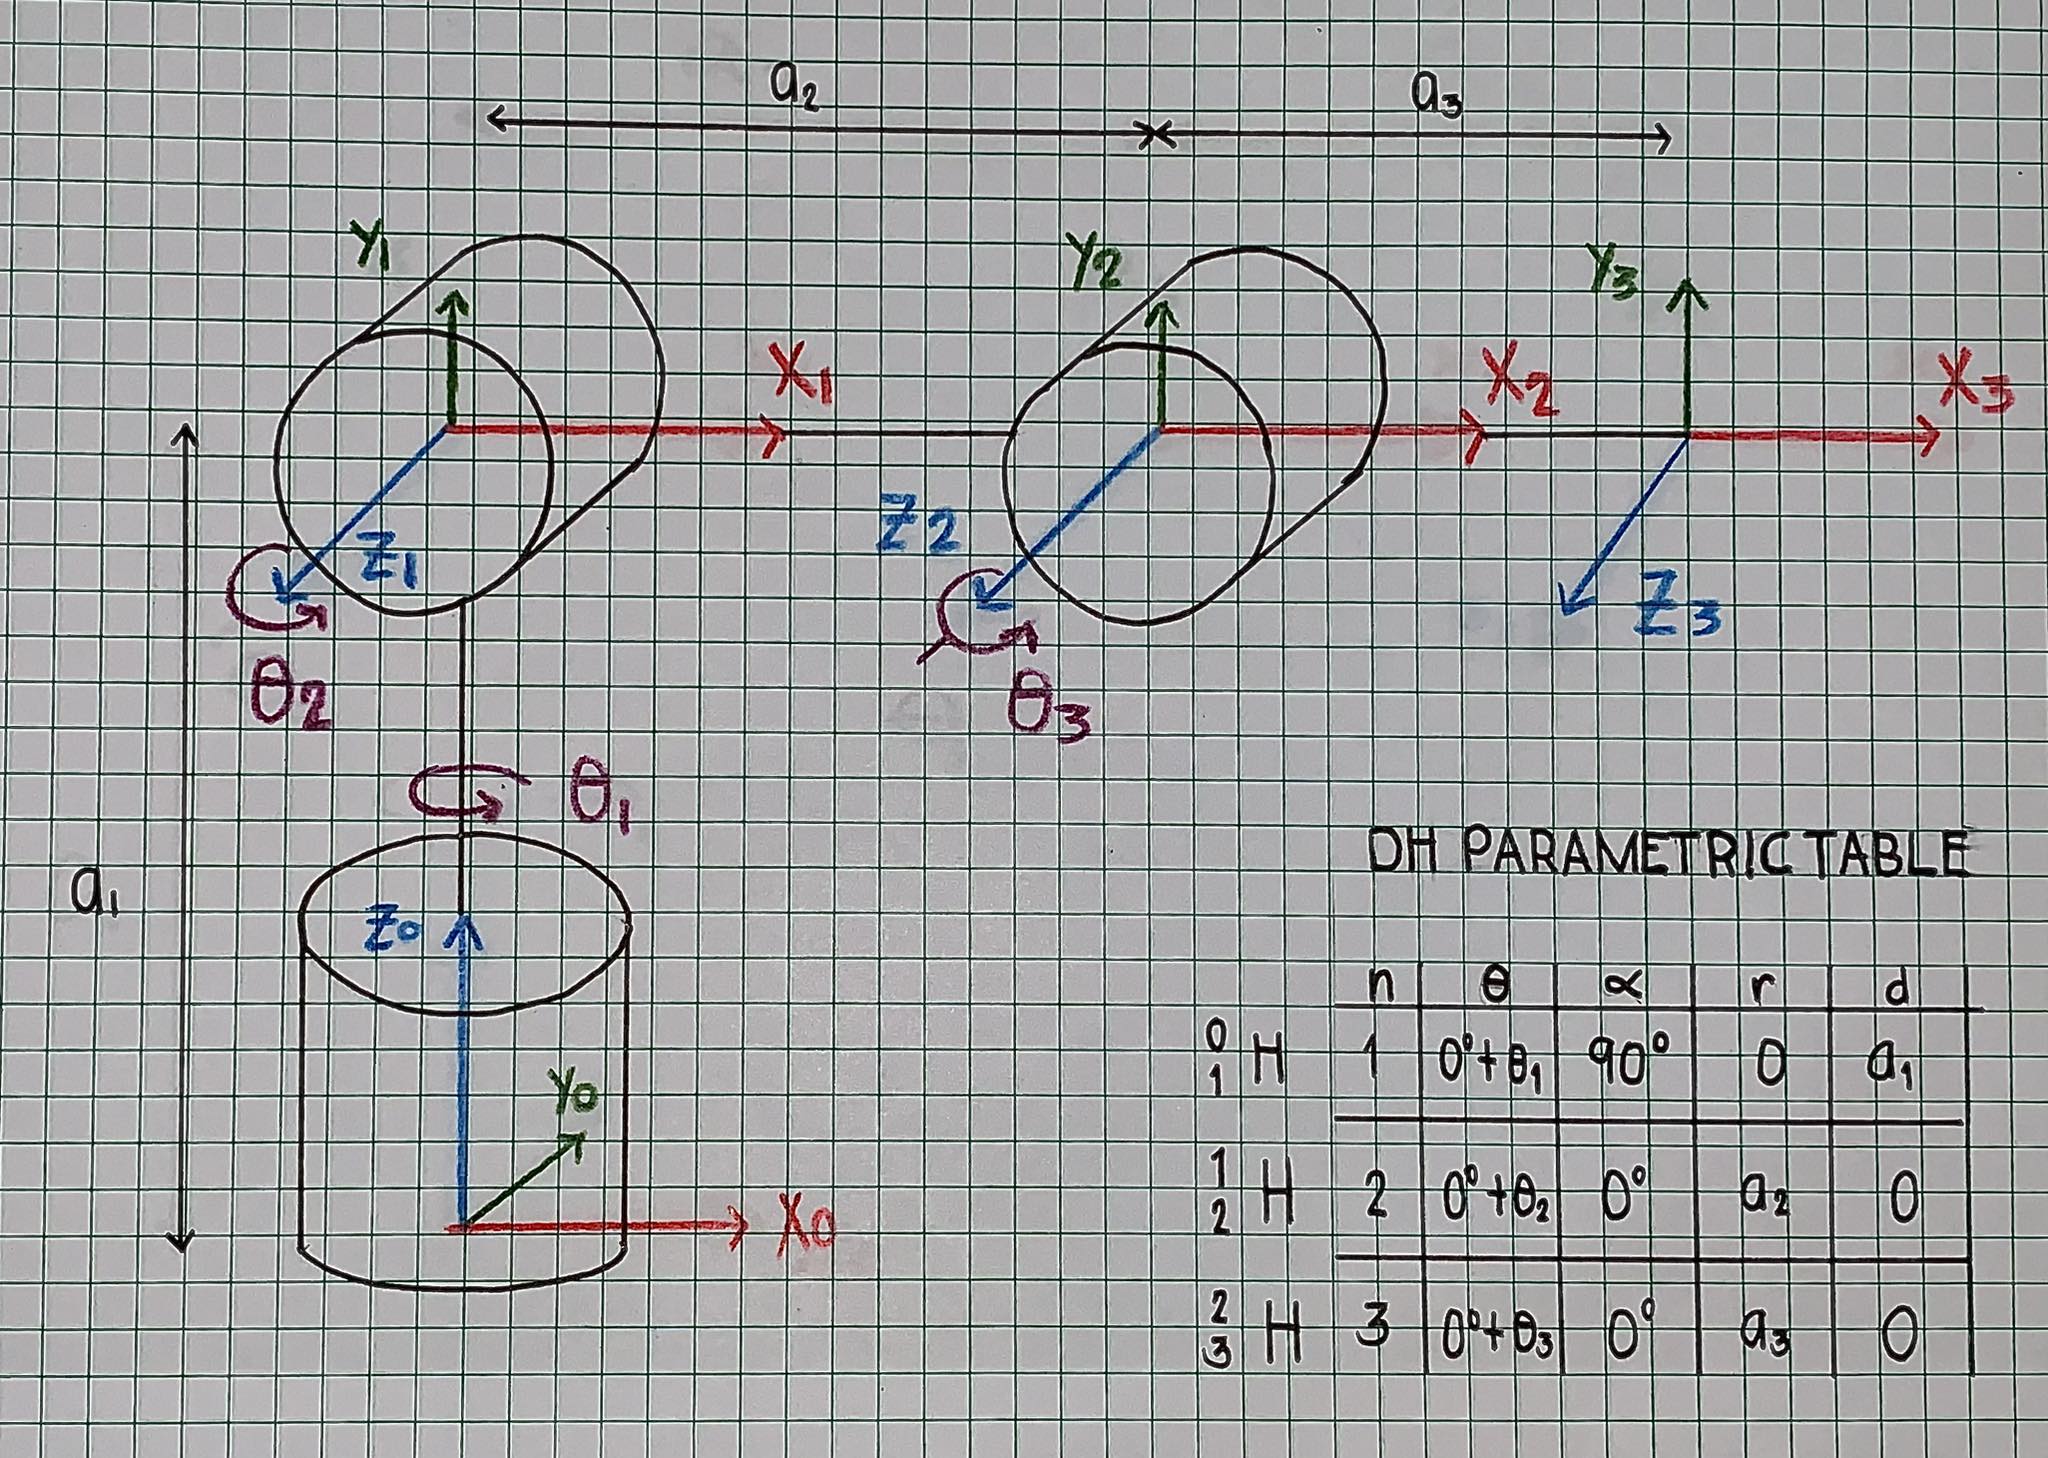 a₂ a₃
Y₁ Y₂ Y₃
X₁ X₂ X₃
Z₁ Z₂ Z₃
θ₂ θ₃
θ₁
a₁
Z₀
Y₀
X₀
DH PARAMETRIC TABLE
n θ α r d
⁰₁H 1 0°+θ₁ 90° 0 a₁
¹₂H 2 0°+θ₂ 0° a₂ 0
²₃H 3 0°+θ₃ 0° a₃ 0